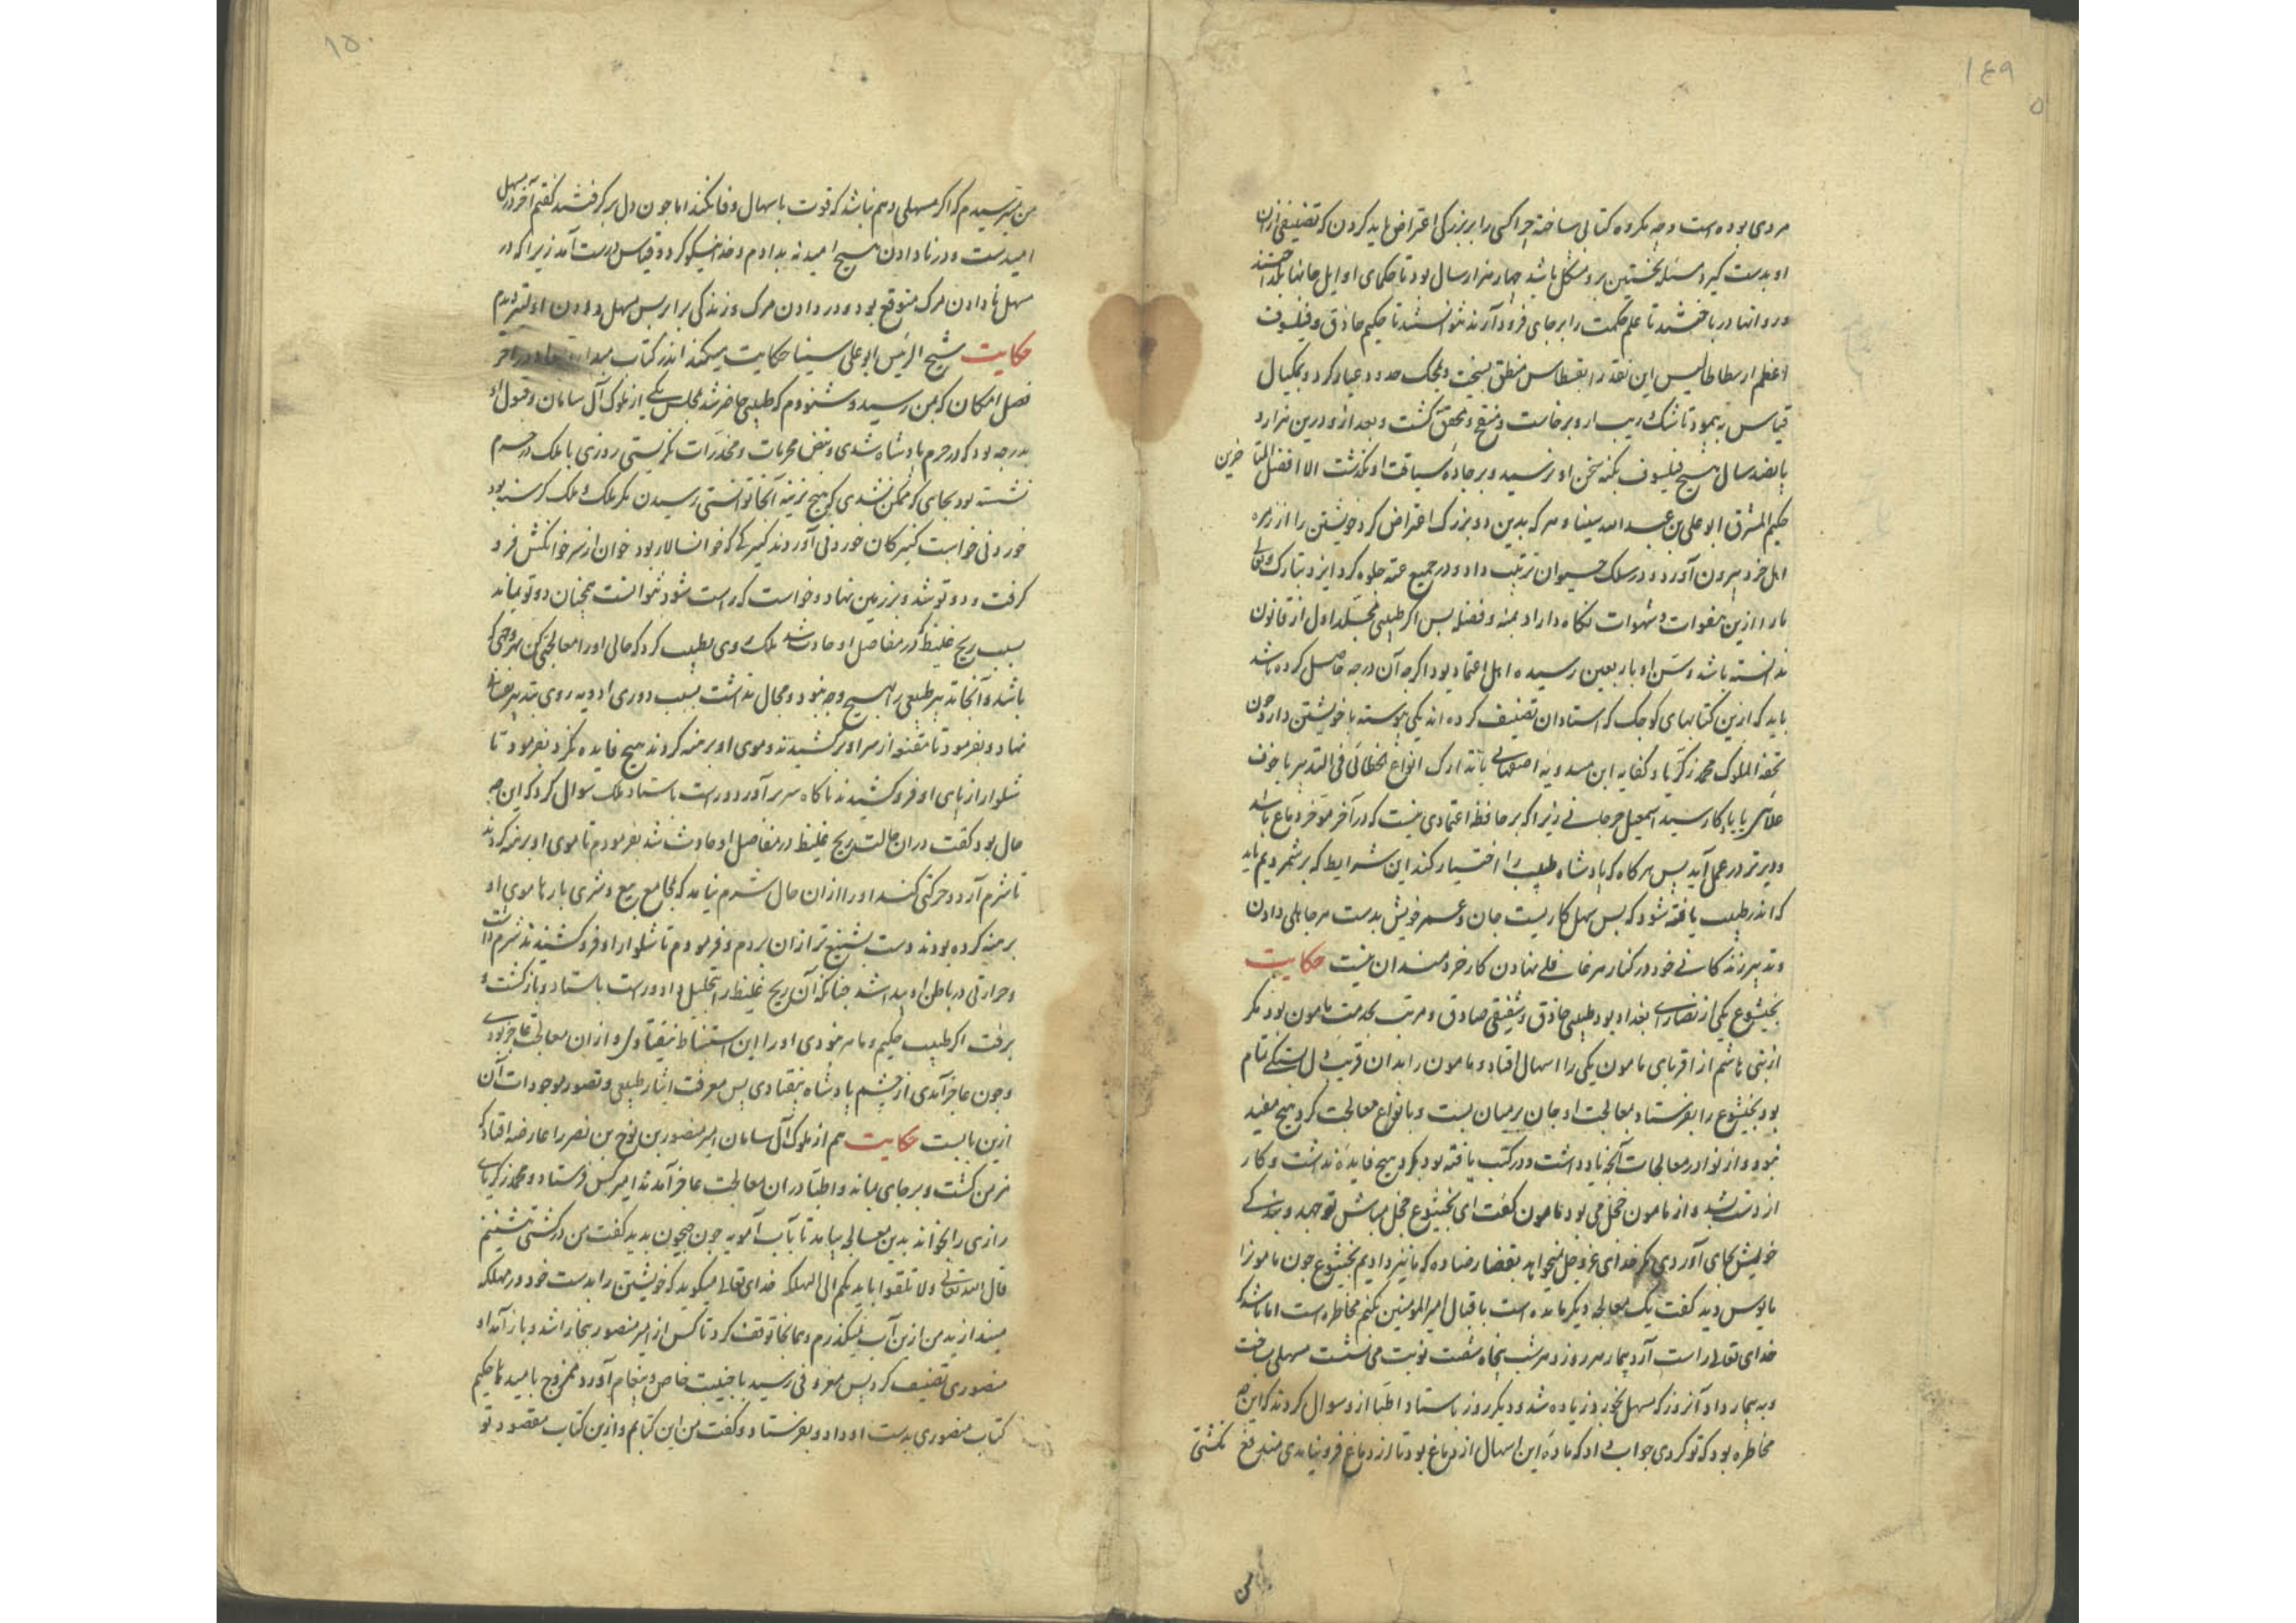 ١٤٩
مردی بوده است و چه مکروه کتابی ساخته چرا کسی را بر بزرکی اعتراض باید کردن که تصنیفی ازان
او بدست کیرد مسئله نخستین برو مشکل باشد چهار هزار سال بود تا حکمای اوایل جانها بکداختند
و روانها درباختند تا علم حکمت را بر جای فرود آرند نتوانستند تا حکیم حاذق و فیلسوف
اعظم ارسطاطالیس این نقد را بقسطاس منطق بسخت و بمحک حدود عیار کرد و بمکیال
قیاس به پیمود تا شک و ریب ازو برخاست و منقح و محقق کشت و بعد ازو درین هزار و
پانصد سال هیچ فیلسوف بکنه سخن او نرسید و بر جاده سیاقت او نکذشت الا افضل المتاخرین
حکیم المشرق ابو علی بن عبد الله سینا و هر که بدین دو بزرک اعتراض کرد خویشتن را از زمره
اهل خرد بیرون آورد و در سلک حیوان ترتیب داد و در جمیع عته جلوه کرد ایزد تبارک و تعالی
ما را ازین هفوات و شهوات نکاه داراد بمنه و فضله بس اکر طبیبی مجلد اول از قانون
ندانسته باشد و سن او باربعین رسیده اهل اعتماد بود اکرچه آن درجه حاصل کرده باشد
باید که ازین کتابهای کوچک که استادان تصنیف کرده اند یکی پیوسته با خویشتن دارد چون
تحفة الملوک محمد زکریا و کفایه ابن مندویه اصفهانی یا تدارک انواع الخطائی فی التدبیر یا خوف
علائی یا یادکار سید اسمعیل جرجانی زیرا که بر حافظه اعتمادی نیست که در آخر مؤخر دماغ باشد
و دیرتر در عمل آید بس هر کاه که پادشاه طبیب را اختیار کند این شرایط که برشمردیم باید
که اندر طبیب یافته شود که بس سهل کاریست جان و عمر خویش بدست هر جاهلی دادن
و تدبیر زندکانی خود در کنار هر غافلی نهادن کار خردمندان نیست حکایت
بختیشوع یکی از نصارای بغداد بود طبیبی حاذق و شفیقی صادق و مرتب بخدمت مامون بود مکر
از بنی هاشم از اقربای مامون یکی را اسهال افتاد و مامون را بدان قریب دل بستکی تمام
بود بختیشوع را بفرستاد بمعالجت او جان بر میان بست و بانواع معالجت کرد هیچ مفید
نبود و از نوادر معالجات آنچه یاد داشت و در کتب یافته بود بکرد هیچ فایده نداشت و کار
از دست بشد و از مامون خجل می بود مامون کفت ای بختیشوع خجل مباش تو جهد و بندکی
خویش بجای آوردی مکر خدای عز و جل نمیخواهد بقضا رضا ده که ما نیز دادیم بختیشوع چون مامونرا
مایوس دید کفت یک معالجه دیکر مانده است باقبال امیر المومنین بکنم مخاطره است اما باشد که
خدای تعالی راست آرد بیمار هر روز و هر شب پنجاه شصت نوبت می نشست مسهلی ساخت
و به بیمار داد آنروز که مسهل بخورد زیاده شد و دیکر روز باستاد اطبا ازو سوال کردند که این چه
مخاطره بود که تو کردی جواب داد که ماده این اسهال از دماغ بود تا از دماغ فرو نیامدی مندفع نکشتی
١٥٠
من بترسیدم که اکر مسهلی دهم نباشد که قوت باسهال وفا نکند اما چون دل برکرفتند کفتم آخر در مسهل
امیدست و در نادادن هیچ امید نه بدادم و خدا نیکو کرد و قیاس درست آمد زیرا که در
مسهل نادادن مرک متوقع بود و در دادن مرک و زندکی برابر بس مسهل دادن اولیتر دیدم
حکایت شیخ الرئیس ابو علی سینا حکایت میکند اندر کتاب مبدا و معاد در آخر
فصل امکان که بمن رسید و شنودم که طبیبی حاضر شد مجلس یکی از ملوک آل سامان و قبول او
بدرجه بود که در حرم پادشاه شدی و نبض محرمات و مخدرات نکریستی روزی با ملک در حرم
نشسته بود بجای که ممکن نشدی که هیچ نرینه آنجا توانستی رسیدن مکر ملک و ملک کرسنه بود
خوردنی خواست کنیزکان خوردنی آوردند کنیزکی که خوانسالار بود خوان از سر خوانکش فرو
کرفت و دوتو شد و بر زمین نهاد و خواست که راست شود نتوانست همچنان دوتو بماند
بسبب ریح غلیظ که در مفاصل او حادث شد ملک روی بطبیب کرد که حالی او را معالجتی کن بهر وجهی که
باشد و آنجا تدبیر طبیعی را هیچ وجه نبود و مجال نداشت بسبب دوری ادویه روی بتدبیر نفسانی
نهاد و بفرمود تا مقنعه از سر او برکشیدند و موی او برهنه کردند هیچ فایده نکرد بفرمود تا
شلوار از پای او فرو کشیدند ناکاه سر برآورد و راست باستاد ملک سوال کرد که این چه
حال بود کفت دران حالت ریح غلیظ در مفاصل او حادث شد بفرمودم تا موی او برهنه کردند
تا شرم آرد و حرکتی کند او را ازان حال شرم نیامد که مجامع بیع و شری بارها موی او
برهنه کرده بودند دست بشنیع تر ازان بردم و فرمودم تا شلوار او فرو کشیدند شرم داشت
و حرارتی در باطن او پیدا شد چنانکه آن ریح غلیظ را تحلیل داد و راست باستاد و بازکشت و
برفت اکر طبیب حکیم و ماهر نبودی او را این استنباط نیفتادی و ازان معالجت عاجز بودی
و چون عاجز آمدی از چشم پادشاه بیفتادی پس معرفت اشیاء طبیعی و تصور موجودات آن
ازین بابست حکایت هم از ملوک آل سامان امیر منصور بن نوح بن نصر را عارضه افتاد که
مزمن کشت و بر جای بماند و اطبا دران معالجت عاجز آمدند امیر کس فرستاد و محمد زکریای
رازی را بخواند بدین معالجه بیامد تا بآب آمویه چون جیحون بدید کفت من در کشتی نشینم
قال الله تعالی ولا تلقوا بایدیکم الی التهلکه خدای تعالی میکوید که خویشتن را بدست خود در مهلکه
میندازید من ازین آب نیکذرم و همانجا توقف کرد تا کس از امیر منصور ببخارا شد و باز آمد او
منصوری تصنیف کرد پس معروفی رسید با جنیبت خاص و پیغام آورد ممزوج بامیدها حکیم
کتاب منصوری بدست او داد و بفرستاد و کفت من این کتابم و ازین کتاب مقصود تو